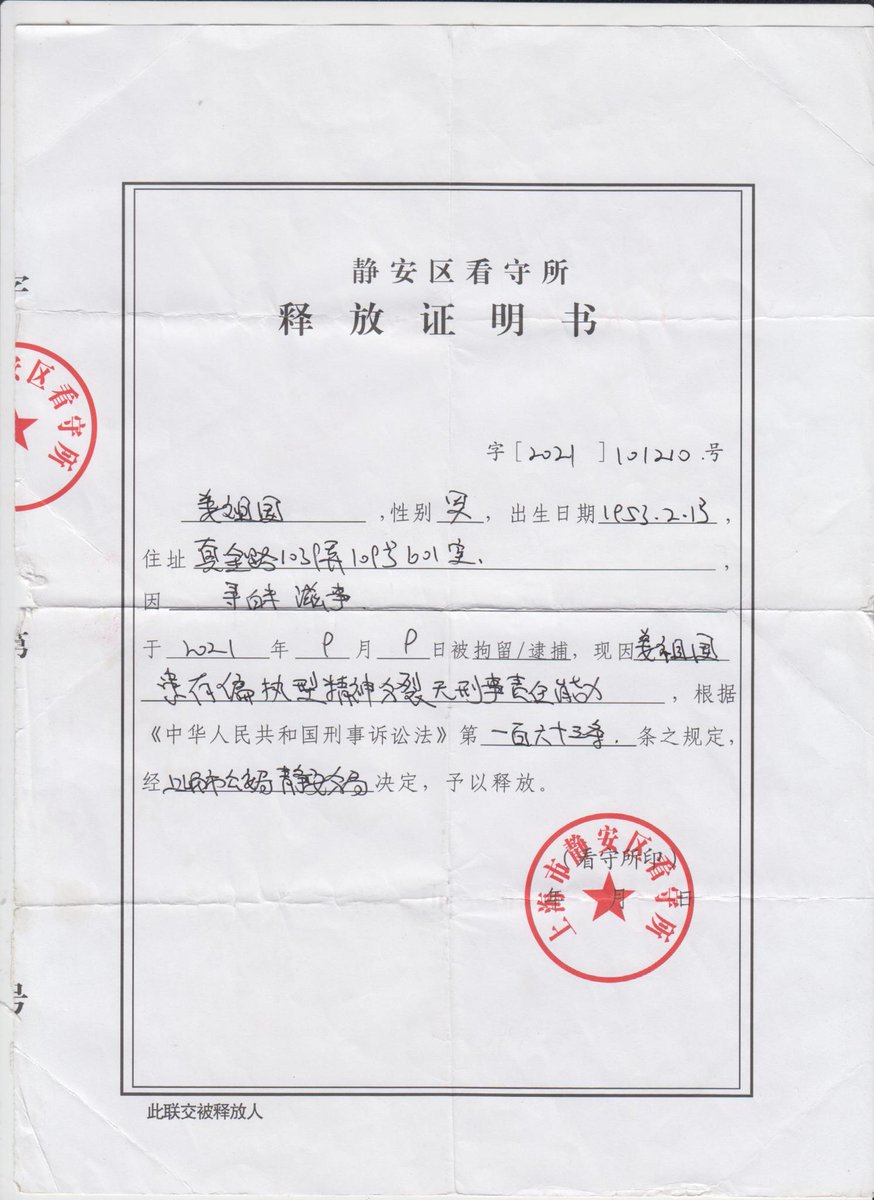 静安区看守所
释放证明书
字［2021］101210号
姜祖国，性别男，出生日期1953.2.13，
住址真金路1039弄109号601室.
因寻衅滋事.
于2021年9月9日被拘留/逮捕，现因姜祖国
患有偏执型精神分裂无刑事责任能力，根据
《中华人民共和国刑事诉讼法》第一百六十三条.条之规定，
经上海市公安局静安分局决定，予以释放。
（看守所印）
年 月 日
上海市静安区看守所
区看守所
号
此联交被释放人